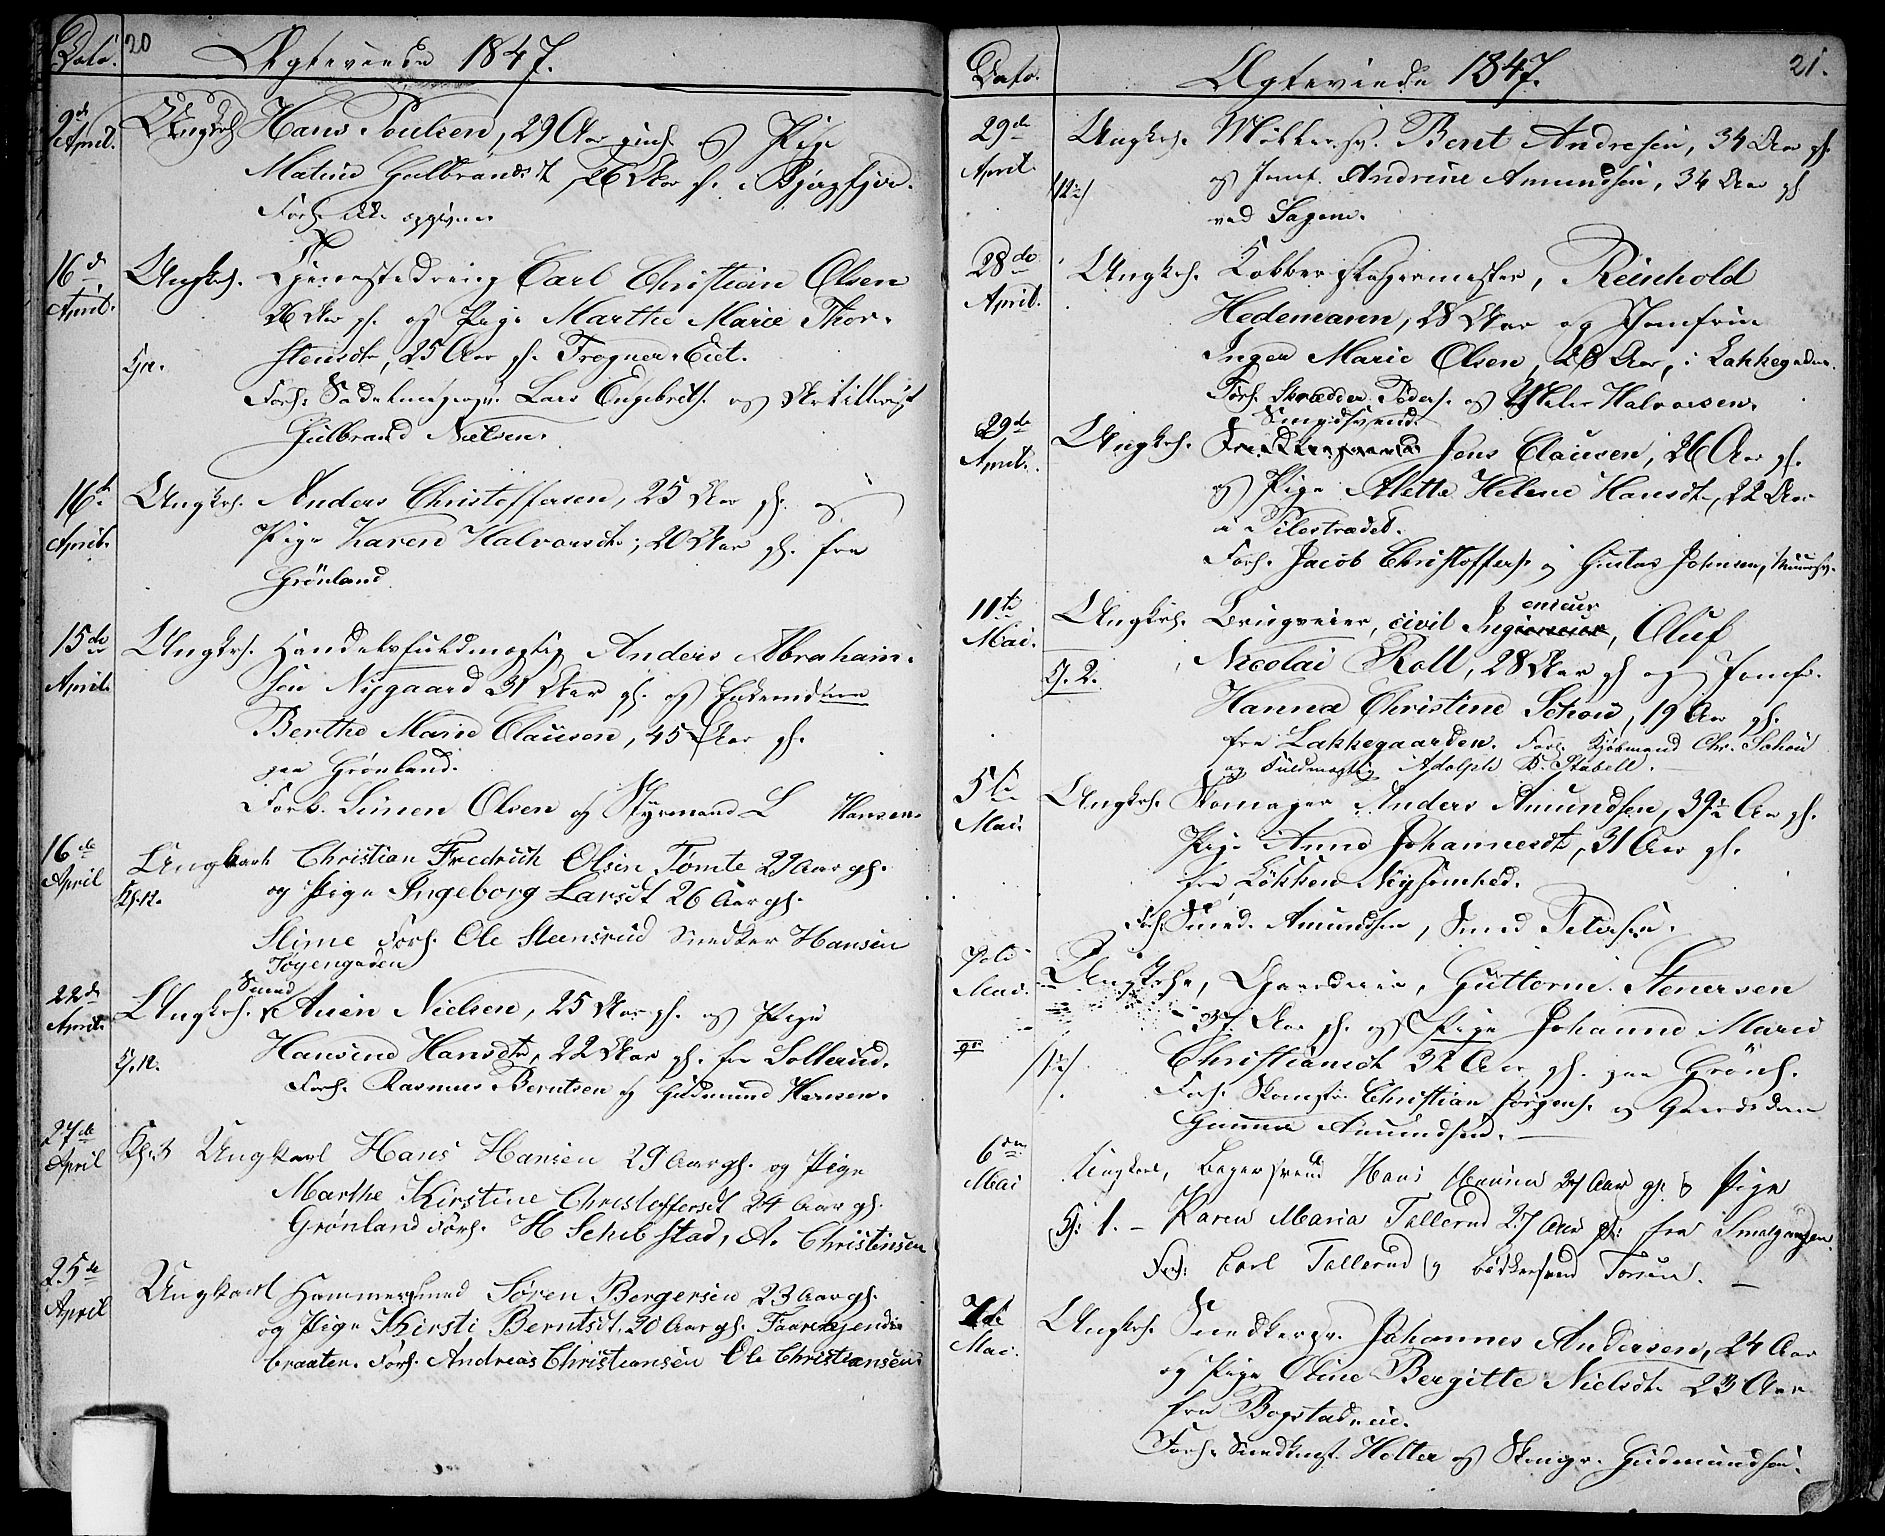 Dato. 20 Ægteviede 1847.
9de April. Ungkrh Hans Poulsen, 29 Aar gml. og Pige
Matine Gulbrandsdt, 26 Aar gl. i Bjergfjer.
Forl. ikke opgivne.
16de April. Ungkrh. Tjenestedreng Carl Christian Olsen
26 Aar gl. og Pige Marthe Marie Thor-
stensdt, 25 Aar gl. Trogner Eiet.
Forl. Sadelmager Lars Engebrets. og Artillerist
Gulbrand Nielsen.
16de April. Ungkrh. Anders Christoffersen, 25 Aar gl. og
Pige Karen Halvorsdt, 20 Aar gl. fra
Grönland
15de April. Ungkrh. Handelsfuldmægtig Anders Abraham-
sen Nygaard 31 Aar gl. og Enkemadame
Berthe Marie Clausen, 45 Aar gl.
paa Grönland.
Forl. Simen Olsen og Styrmand L Hansen.
16de April Ungkarl Christian Fredrick Olsen Tømte 29 Aar gl.
og Pige Ingeborg Larsdt 26 Aar gl.
Slime Forl. Ole Steensrud Snedker Hansen
Tøyengaden
22de April. Ungkrh. Smed Auen Nielsen, 25 Aar gl. og Pige
Hansine Hansdt, 22 Aar gl. fra Sollerud.
Forl. Rasmus Berntsen og Gudmund Hansen.
27de April Ungkarl Hans Hansen 29 Aar gl. og Pige
Marthe Kirstine Christoffersdt 24 Aar gl.
Grønland Forl. H Schibstad, A. Christensen
25de April Ungkarl Hammersmed Søren Borgersen 23 Aar gl.
og Pige Kirsti Berntsdt. 20 Aar gl.
braaten. Forl. Andreas Christiansen Ole Christiansen
Dato. Ægteviede 1847. 21.
29de April. Ungkrh. Møllersv. Bent Andresen, 34 Aar gl.
og Jomf. Andrine Amundsen, 34 Aar gl
ved Sagene.
28de April. Ungkrh. Kobberslagermester, Reinhold
Hedemann, 28 Aar og Jomfrue
Inger Marie Olsen, 28 Aar, i Lakkegaden.
Forl. Skrædder Peders. og Halvorsen.
29de April. Ungkrh. Smedsvend Jens Clausen, 26 Aar gl.
og Pige Alette Helene Hansdt, 22 Aar
i Pilestrædet.
Forl. Jacob Christoffers. og Gustav Johnsen, Muursv.
11te Mai. Ungkrh. Brugseier, civil Ingenieur, Oluf
Nicolai Roll, 28 Aar gl og Jomfr.
G. 2.
Hanna Christine Schou, 19 Aar gl.
fra Lakkegaarden. Forl. Kjøbmand Chr. Schou
og Fuldmægtig Adolph B. Stabell.
5te Mai. Ungkrh. Skomager Anders Amundsen, 39½ Aar gl.
Pige Anne Johannesdt, 31 Aar gl.
fra Løkken Nysomhed.
Forl. Smed. Amundsen, Smed Petersen.
Mai. Ungkrh., Gaardeier, Guttorm Stenersen
37 Aar gl. og Pige Johanne Marie
Christiansdt 32 Aar gl. paa Grönl.
Forl. Skomgr. Christian Jörgens. og
Gunner Amundsen.
6te Mai Ungkarl, Bagersvend Hans Hansen 27 Aar gl. og Pige
G. 1. – Karen Maria Tollerud 27 Aar gl. fra Smalgangen.
Forl. Carl Tollerud og Bødkersvend
7de Mai. Ungkrh. Snedkersv. Johannes Andersen, 24 Aar
og Pige Oline Bergitte Nielsdt. 23 Aar
fra Bogstadveie.
Forl. Snedkergst. Holter og Skomgr. Gudmundsen.